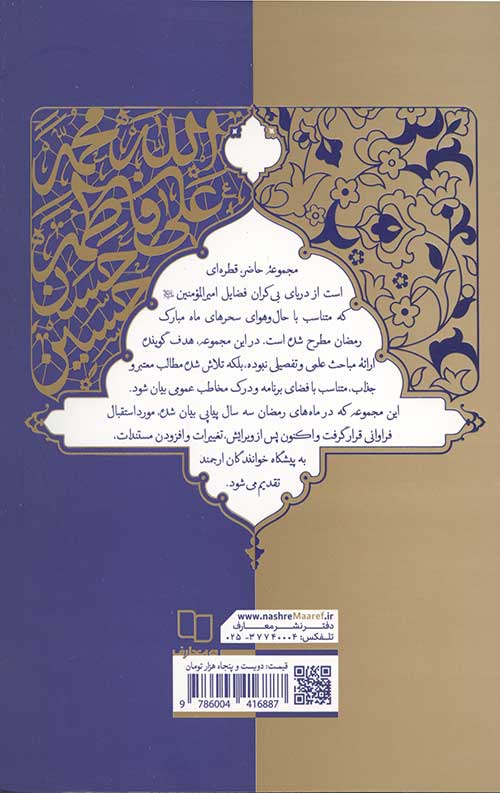 الله محمد
علی فاطمة
حسن
حسین
مجموعهٔ حاضر، قطره‌ای
است از دریای بی‌کران فضایل امیرالمؤمنین
که متناسب با حال‌وهوای سحرهای ماه مبارک
رمضان مطرح شده است. در این مجموعه، هدف گوینده
ارائهٔ مباحث علمی و تفصیلی نبوده، بلکه تلاش شده مطالب معتبر و
جذاب، متناسب با فضای برنامه و درک مخاطب عمومی بیان شود.
این مجموعه که در ماه‌های رمضان سه سال پیاپی بیان شده، مورد استقبال
فراوانی قرار گرفت و اکنون پس از ویرایش، تغییرات و افزودن مستندات،
به پیشگاه خوانندگان ارجمند
تقدیم می‌شود.
www.nashreMaaref.ir
دفتر نشر معارف
تلفکس: ۳۷۷۴۰۰۰۴-۰۲۵
معارف
قیمت: دویست و پنجاه هزار تومان
9 786004 416887